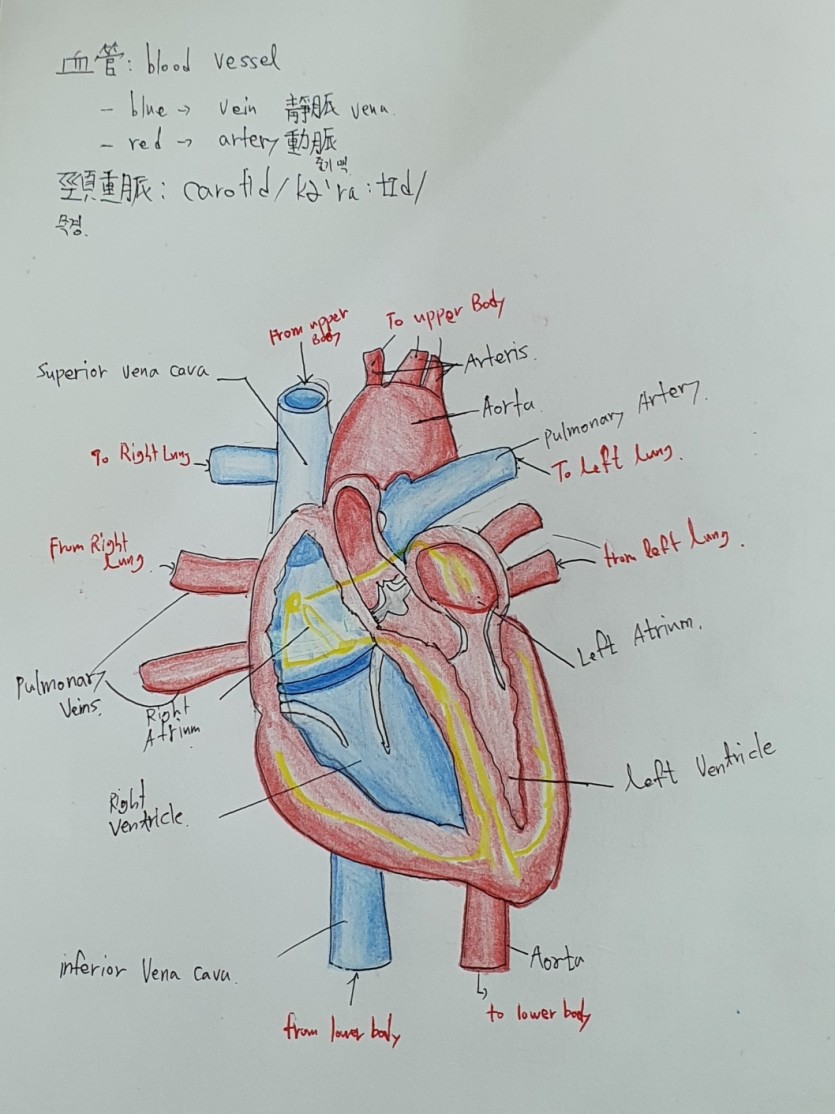 血管: blood vessel
- blue → vein 靜脈 vena.
- red → artery 動脈
줄기 맥
頸重脈: carotid/kə'rɑ:tɪd/
목경.
From upper
Body
To upper Body
Arteris.
Superior vena cava
Aorta
Pulmonary Artery.
To Right Lung
To Left Lung.
From Right
Lung
from left Lung.
Left Atrium.
Pulmonary
Veins.
Right
Atrium
Right
Ventricle.
Left Ventricle
inferior Vena cava.
Aorta
from lower body
to lower body